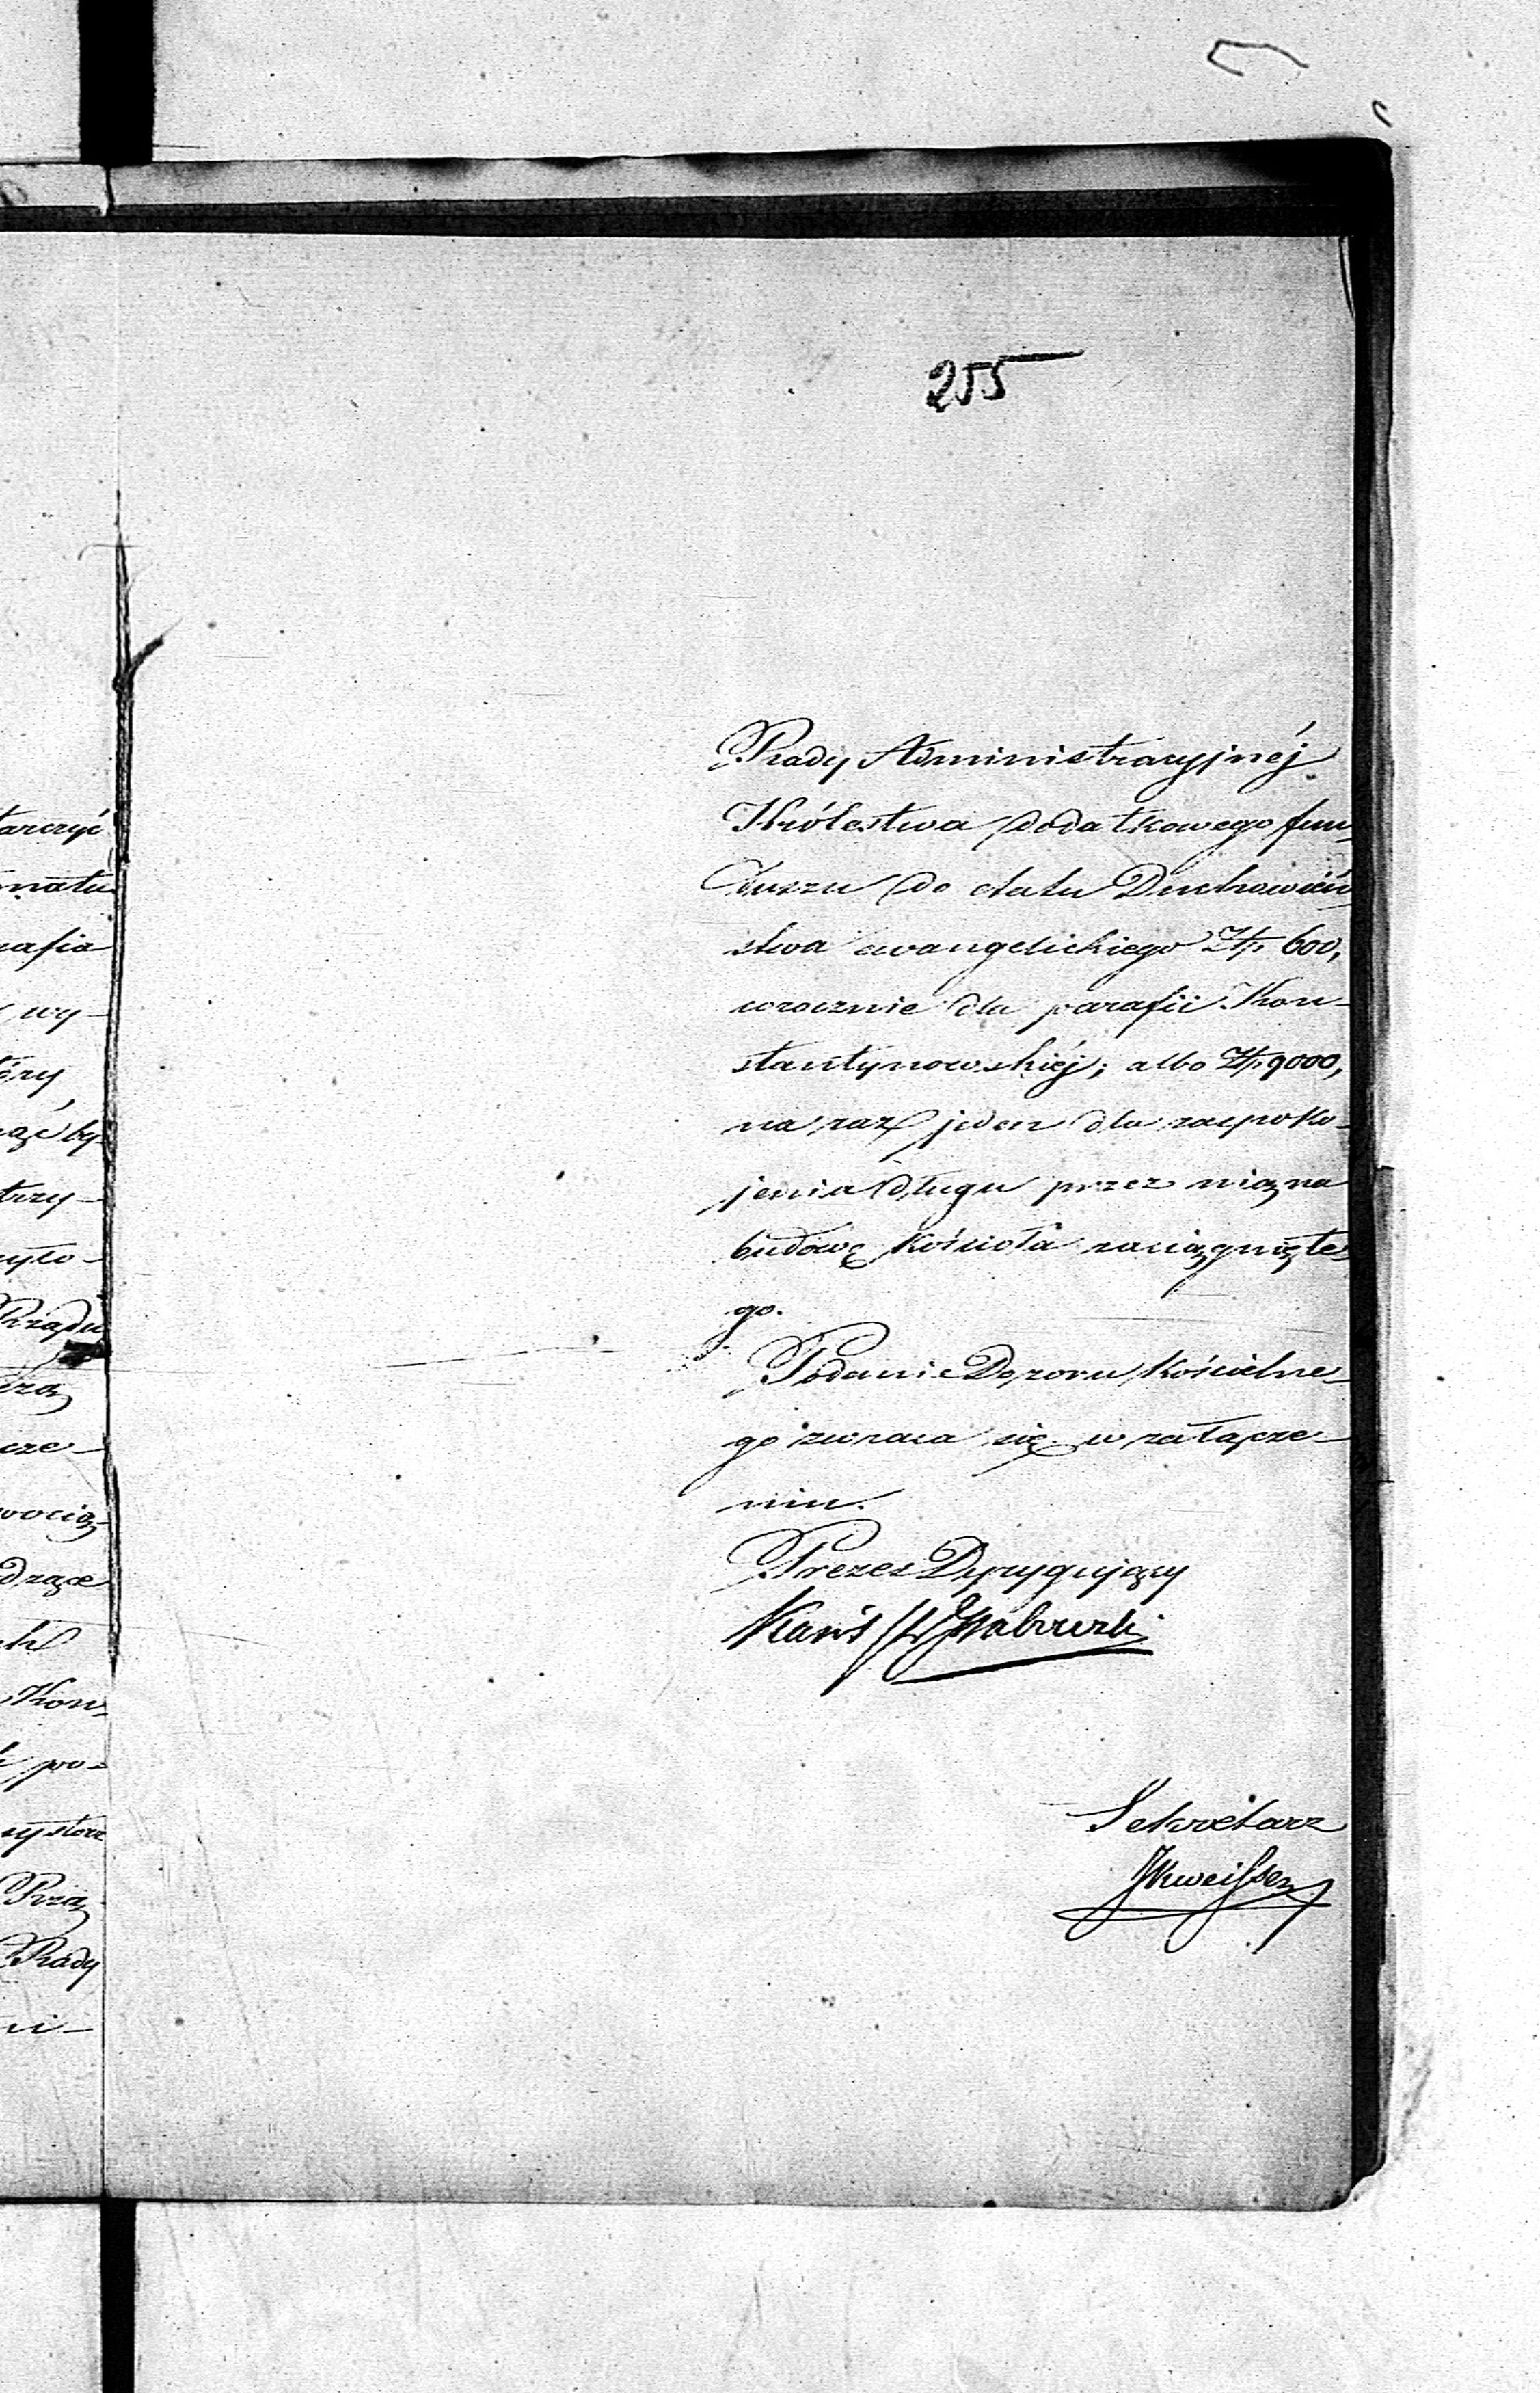 255
Rady Administracyjnéj
Królestwa dodatkowego fun-
duszu do etatu Duchowień-
stwa ewangelickiego Złp. 600,
wrocznie dla parafii Kon-
stantynowskiéj; albo Złp. 9000,
na raz jeden dla zaspoko-
jenia długu przez nią na
budowę Kościoła zaciągnięte-
go.
Podanie Dozoru Kościelne-
go zwraca się w załącze-
niu.
Prezes Dyrygujący
Sekretarz
tarczyć
natu
rafia
wy-
tóry
trzy-
Rządu
cze-
wocią-
dzące
Kon-
po-
Rady
ni-